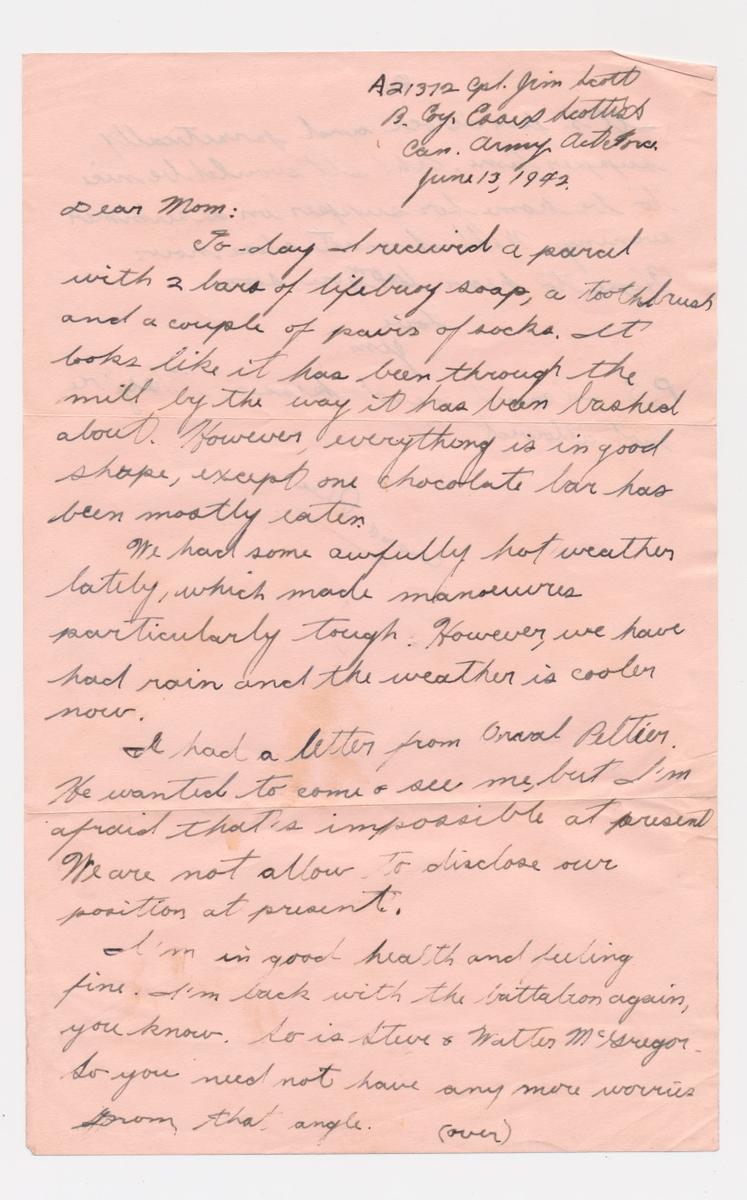 A21372 Cpl. Jim Scott
B. Coy. Essex Scottish
Can. Army Active Force
June 13, 1942.
Dear Mom:
To-day I received a parcel
with 2 bars of lifebuoy soap, a toothbrush
and a couple of pairs of socks. It
looks like it has been through the
mill by the way it has been bashed
about. However, everything is in good
shape, except one chocolate bar has
been mostly eaten.
We had some awfully hot weather
lately, which made manoeuvres
particularly tough. However, we have
had rain and the weather is cooler
now.
I had a letter from Orval Peltier.
He wanted to come & see me, but I'm
afraid that's impossible at present
We are not allow to disclose our
position at present.
I'm in good health and feeling
fine. I'm back with the battalion again,
you know. So is Steve & Walter McGregor.
So you need not have any more worries
from that angle. (over)